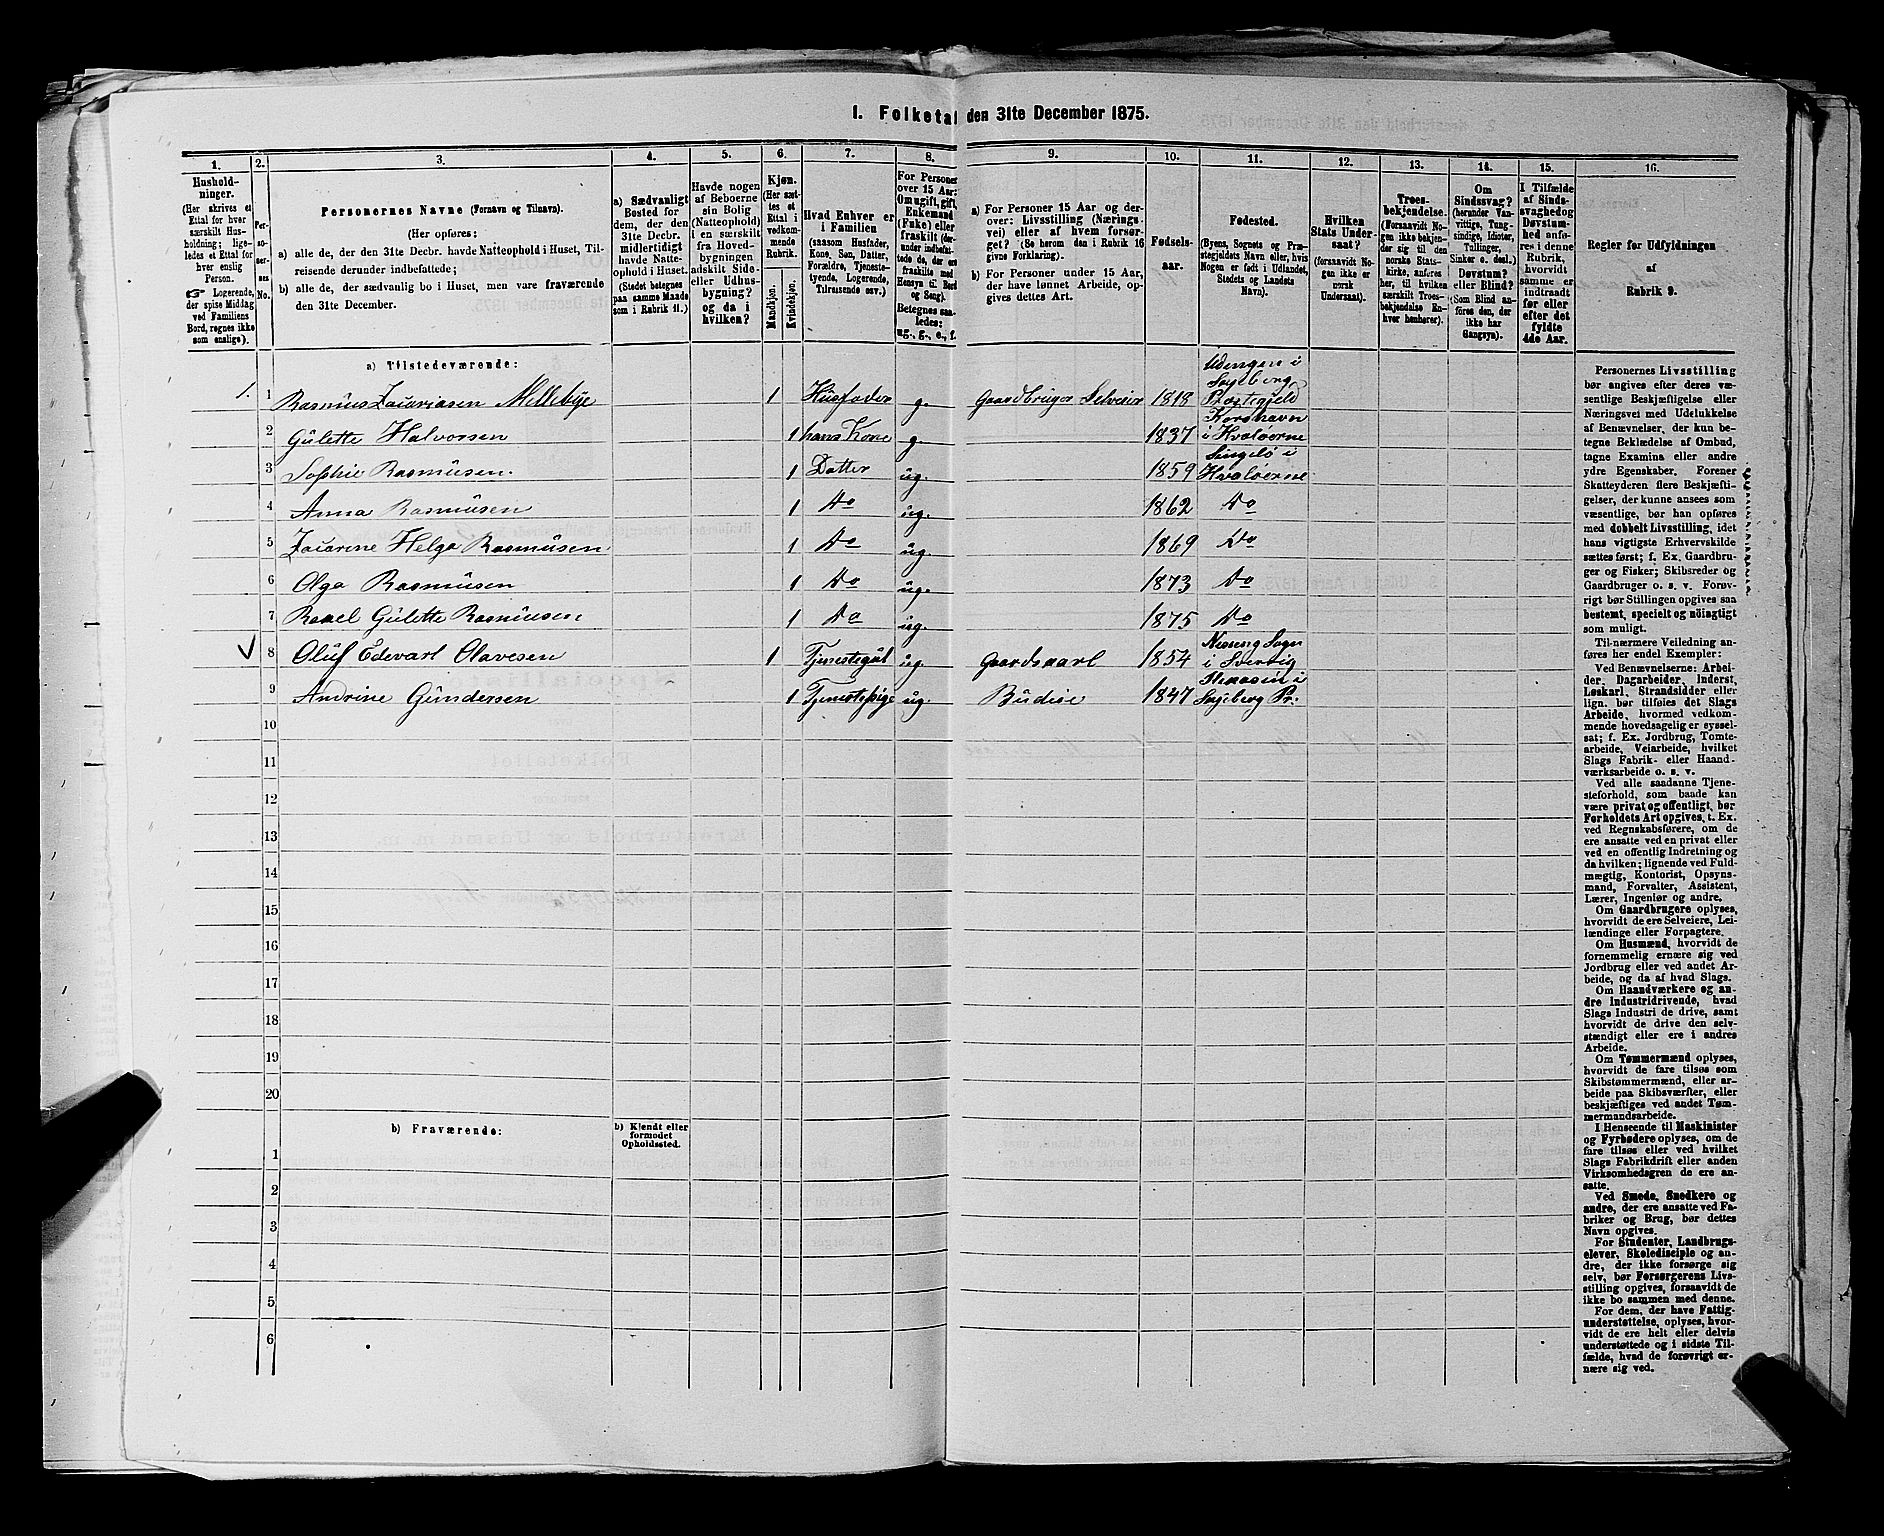 1. Folketal den 31te December 1875.
1. 2. 3. 4. 5. 6. 7. 8. 9. 10. 11. 12. 13. 14. 15. 16.
Hushold-
ninger.
(Her skrives et
Ettal for hver
særskilt Hus-
holdning; lige-
ledes et Ettal for
hver enslig
Person.
☞ Logerende,
der spise Middag
ved Familiens
Bord, regnes ikke
som enslige).
Per-
so-
ner-
nes
No.
Personernes Navne (Fornavn og Tilnavn).
(Her opføres:
a) alle de, der den 31te Decbr. havde Natteophold i Huset, Til-
reisende derunder indbefattede;
b) alle de, der sædvanlig bo i Huset, men vare fraværende
den 31te December.
a) Sædvanligt
Bosted for
dem, der den
31te Decbr.
midlertidigt
havde Natte-
ophold i Huset.
(Stedet betegnes
paa samme Maade
som i Rubrik 11.)
Havde nogen
af Beboerne
sin Bolig
(Natteophold)
i en særskilt
fra Hoved-
bygningen
adskilt Side-
eller Udhus-
bygning?
og da i
hvilken?
Kjøn.
(Her sæt-
tes et
Ettal i
vedkom-
mende
Rubrik.
Mandkjøn.
Kvindekjøn.
Hvad Enhver er
i Familien
(saasom Husfader,
Kone, Søn, Datter,
Forældre, Tjeneste-
tyende, Logerende,
Tilreisende osv.)
For Personer
over 15 Aar:
Om ugift, gift,
Enkemand
(Enke) eller
fraskilt (der-
under indbefat-
tede de, der ere
fraskilte med
Hensyn til Bord
og Seng).
Betegnes saa-
ledes:
ug., g., e., f.
a) For Personer 15 Aar og der-
over: Livsstilling (Nærings-
vei) eller af hvem forsør-
get? (Se herom den i Rubrik 16
givne Forklaring).
b) For Personer under 15 Aar,
der have lønnet Arbeide, op-
gives dettes Art.
Fødsels-
aar.
Fødested.
(Byens, Sognets og Præ-
stegjeldets Navn eller, hvis
Nogen er født i Udlandet,
Stedets og Landets
Navn).
Hvilken
Stats Under-
saat?
(forsaavidt No-
gen ikke er
norsk
Undersaat).
Troes-
bekjendelse.
(Forsaavidt No-
gen ikke bekjen-
der sig til den
norske Stats-
kirke, anføres
her, til hvilken
særskilt Troes-
bekjendelse En-
hver henhører).
Om
Sindssvag?
(herunder Van-
vittige, Tung-
sindige, Idioter,
Tullinger,
Sinker o. desl.)
Døvstum?
eller Blind?
(Som Blind an-
føres den, der
ikke har
Gangsyn).
I Tilfælde
af Sinds-
svaghed og
Døvstum-
hed anfø-
res i denne
Rubrik,
hvorvidt
samme er
indtraadt
før eller
efter det
fyldte
4de Aar.
Regler før Udfyldningen
af
Rubrik 9.
a) Tilstedeværende:
1. 1 Rasmus Zacariasen Mellebye 1 Husfader g. Gaardbruger Selveier 1818 Udengen i Sogeberg Præstegjeld
2 Gulette Halvorsen 1 hans Kone g. 1837 Korshavn i Hvaløerne
3 Sophie Rasmusen. 1 Datter ug. 1859 Singelø i Hvaløerne
4 Anna Rasmusen 1 Do ug. 1862 Do
5 Zacarine Helga Rasmusen 1 Do ug. 1869 Do
6 Olga Rasmusen 1 Do ug. 1873 Do
7 Rakel Gulette Rasmusen 1 Do ug. 1875 Do
8 Oluf Edevart Olavesen 1 Tjenestegut ug. Gaardskarl 1854 Sogn i Sverrig
9 Andrine Gundersen 1 Tjenestepige ug. Budeie 1847 i Sogeberg Pr.
10
11
12
13
14
15
16
17
18
19
20
b) Fraværende:
b) Kjendt eller
formodet
Opholdssted.
1
2
3
4
5
6
Personernes Livsstilling
bør angives efter deres væ-
sentlige Beskjæftigelse eller
Næringsvei med Udelukkelse
af Benævnelser, der kun be-
tegne Beklædelse af Ombud,
tagne Examina eller andre
ydre Egenskaber. Forener
Skatteyderen flere Beskjæfti-
gelser, der kunne ansees som
væsentlige, bør han opføres
med dobbelt Livsstilling, idet
hans vigtigste Erhvervskilde
sættes først; f. Ex. Gaardbru-
ger og Fisker; Skibsreder og
Gaardbruger o. s. v. Forøv-
rigt bør Stillingen opgives saa
bestemt, specielt og nöiagtigt
som muligt.
Til nærmere Veiledning an-
føres her endel Exempler:
Ved Benævnelserne: Arbei-
der, Dagarbeider, Inderst,
Løskarl, Strandsidder eller
lign. bør tilføies det Slags
Arbeide, hvormed vedkom-
mende hovedsagelig er syssel-
sat; f. Ex. Jordbrug, Tomte-
arbeide, Veiarbeide, hvilket
Slags Fabrik- eller Haand-
værksarbeide o. s. v.
Ved alle saadanne Tjene-
steforhold, som baade kan
være privat og offentligt, bør
Forholdets Art opgives, t. Ex.
ved Regnskabsførere, om de
ere ansatte ved en privat eller
ved en offentlig Indretning og
da hvilken; lignende ved Fuld-
mægtig, Kontorist, Opsyns-
mand, Forvalter, Assistent,
Lærer, Ingeniør og andre.
Om Gaardbrugere oplyses,
hvorvidt de ere Selveiere, Lei-
lændinge eller Forpagtere.
Om Husmænd, hvorvidt de
fornemmelig ernære sig ved
Jordbrug eller ved andet Ar-
beide, og da af hvad Slags.
Om Haandværkere og an-
dre Industridrivende, hvad
Slags Industri de drive, samt
hvorvidt de drive den selv-
stændigt eller ere i andres
Arbeide.
Om Tømmermænd oplyses,
hvorvidt de fare tilsøs som
Skibstømmermænd, eller ar-
beide paa Skibsværfter, eller
beskjæftiges ved andet Tøm-
mermandsarbeide.
I Henseende til Maskinister
og Fyrbødere oplyses, om de
fare tilsøs eller ved hvilket
Slags Fabrikdrift eller anden
Virksomhedsgren de ere an-
satte.
Ved Smede, Snedkere og
andre, der ere ansatte ved Fa-
briker og Brug, bør dettes
Navn opgives.
For Studenter, Landbrugs-
elever, Skoledisciple og an-
dre, der ikke forsørge sig
selv, bør Forsørgerens Livs-
stilling opgives, forsaavidt de
ikke bo sammen med denne.
For dem, der have Fattig-
understøttelse, oplyses, hvor-
vidt de ere helt eller delvis
understøttede og i sidste Til-
fælde, hvad de forøvrigt er-
nære sig ved.